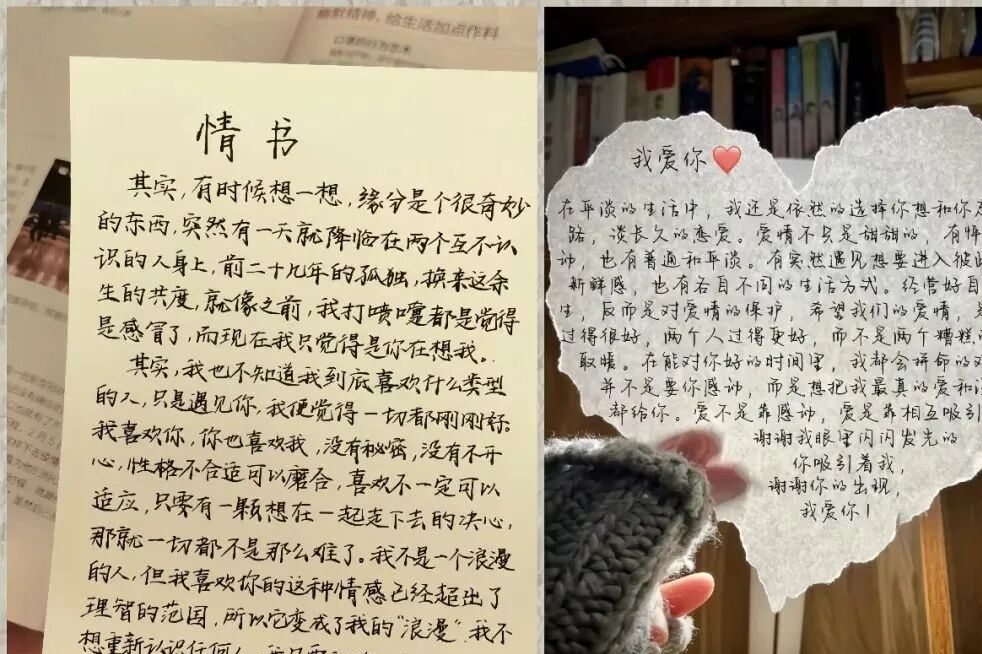 幽默精神，给生活加点作料
口罩的行为艺术
情书
其实，有时候想一想，缘分是个很奇妙
的东西，突然有一天就降临在两个互不认
识的人身上，前二十九年的孤独，换来这余
生的共度，就像之前，我打喷嚏都是觉得
是感冒了，而现在我只觉得是你在想我。
其实，我也不知道我到底喜欢什么类型
的人，只是遇见你，我便觉得一切都刚刚好。
我喜欢你，你也喜欢我，没有秘密，没有不开
心，性格不合适可以磨合，喜欢不一定可以
适应，只要有一颗想在一起走下去的决心，
那就一切都不是那么难了。我不是一个浪漫
的人，但我喜欢你的这种情感已经超出了
理智的范围，所以它变成了我的“浪漫”，我不
想重新认识任何人
我爱你❤️
在平淡的生活中，我还是依然的选择你想和你
路，谈长久的恋爱。爱情不只是甜甜的，有怦
动，也有普通和平淡。有突然遇见想要进入彼此
新鲜感，也有各自不同的生活方式。经营好自
生，反而是对爱情的保护，希望我们的爱情，是
过得很好，两个人过得更好，而不是两个糟糕的
取暖。在能对你好的时间里，我都会拼命的对
并不是要你感动，而是想把我最真的爱和
都给你。爱不是靠感动，爱是靠相互吸引
谢谢我眼里闪闪发光的
你吸引着我，
谢谢你的出现，
我爱你！